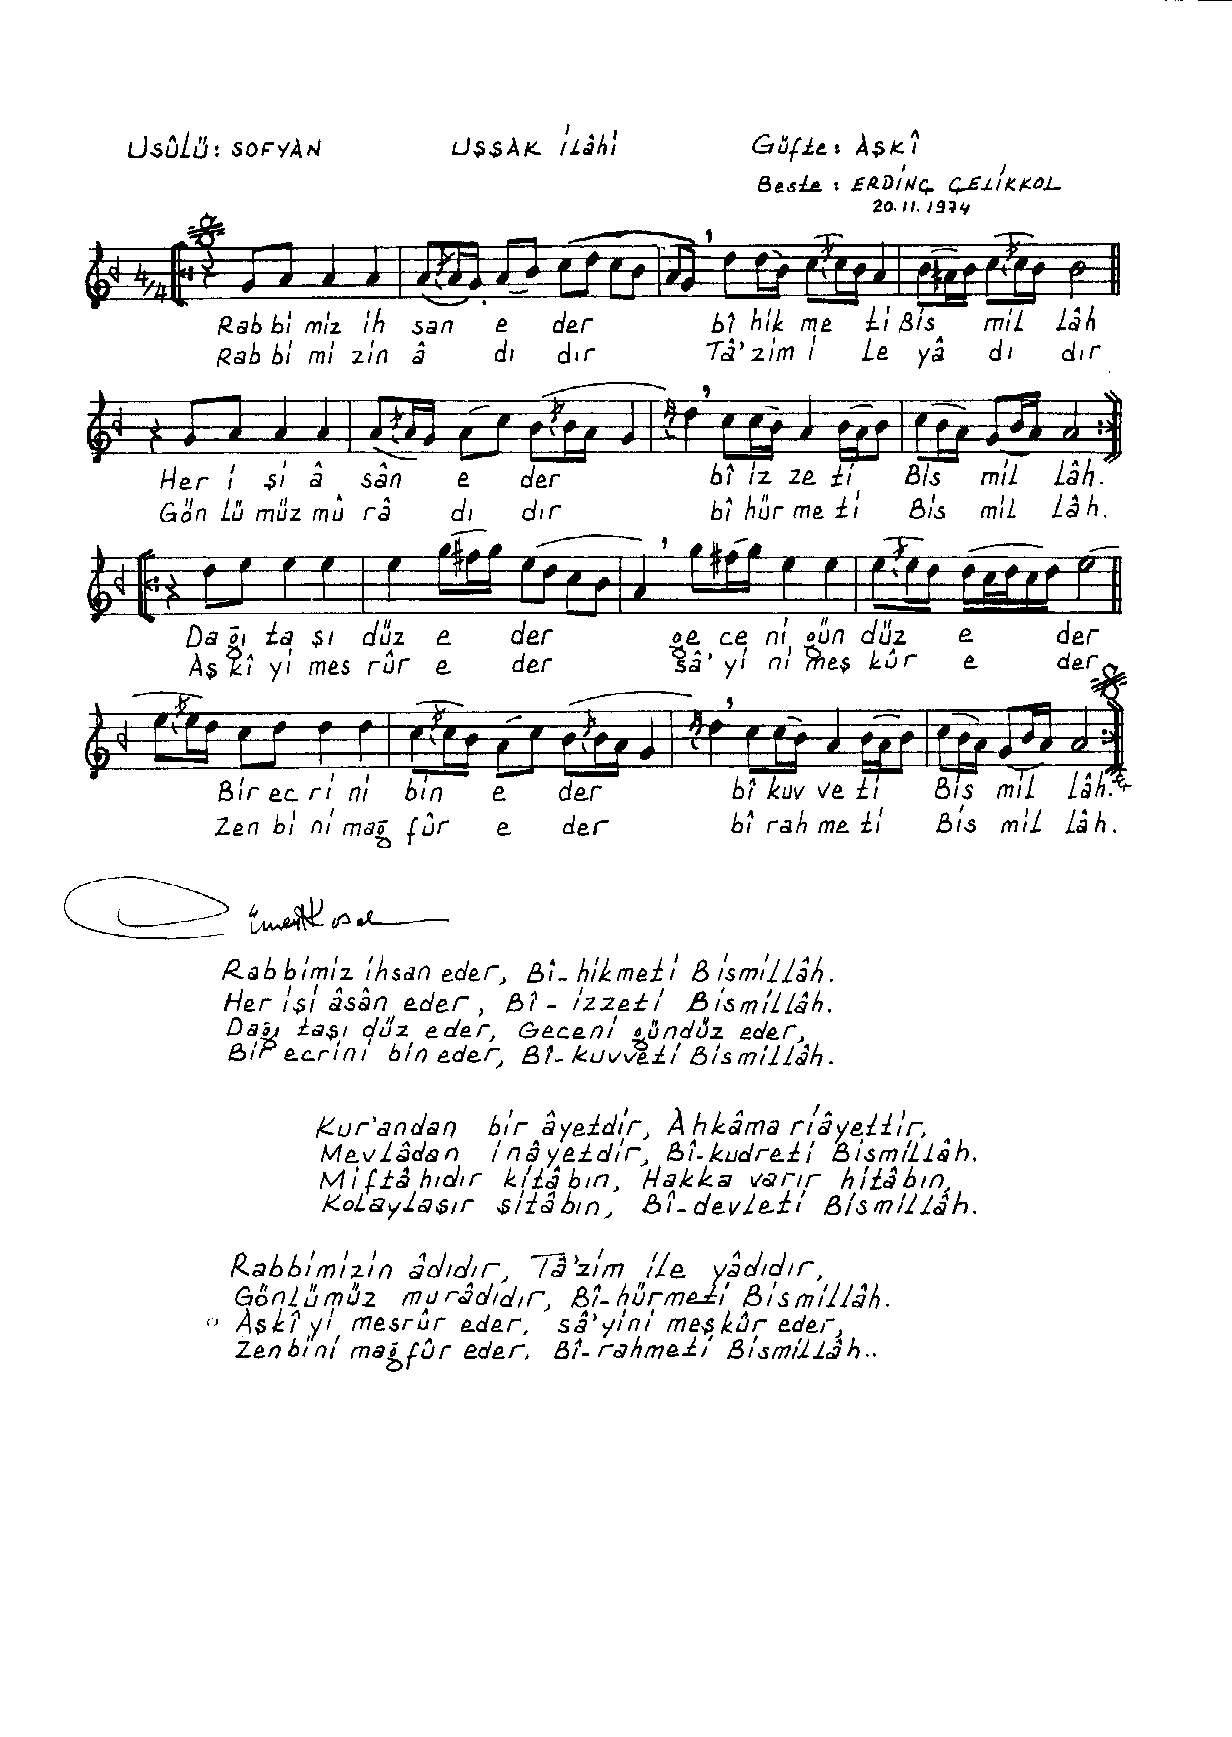 Usûlü: SOFYAN UŞŞAK İLâhi Güfte: AŞKÎ
Beste: ERDİNÇ ÇELİKKOL
20.11.1974
4/4
Rab bi miz ih san e der bî hik me ti Bis mil lâh
Rab bi mi zin â dı dır Tâ'zim i le yâ dı dır
Her i şi â sân e der bî iz ze ti Bis mil lâh.
Gön lü müz mû râ dı dır bî hür me ti Bis mil lâh.
Da ğı ta şı düz e der ge ce ni gün düz e der
Aş kî yi mes rûr e der sâ'yi ni meş kûr e der
Bir ec ri ni bin e der bî kuv ve ti Bis mil lâh.
Zen bi ni mağ fûr e der bî rah me ti Bis mil lâh.
Rabbimiz ihsan eder, Bî-hikmeti Bismillâh.
Her işi âsân eder, Bî-izzeti Bismillâh.
Dağı taşı düz eder, Geceni gündüz eder,
Bir ecrini bin eder, Bî-kuvveti Bismillâh.
Kur'andan bir âyetdir, Ahkâma riâyettir,
Mevlâdan inâyetdir, Bî-kudreti Bismillâh.
Miftâhıdır kitâbın, Hakka varır hitâbın,
Kolaylaşır şitâbın, Bî-devleti Bismillâh.
Rabbimizin âdıdır, Tâ'zim ile yâdıdır,
Gönlümüz murâdıdır, Bî-hürmeti Bismillâh.
Aşkî yi mesrûr eder, sâ'yini meşkûr eder,
Zenbini mağfûr eder. Bî-rahmeti Bismillâh..